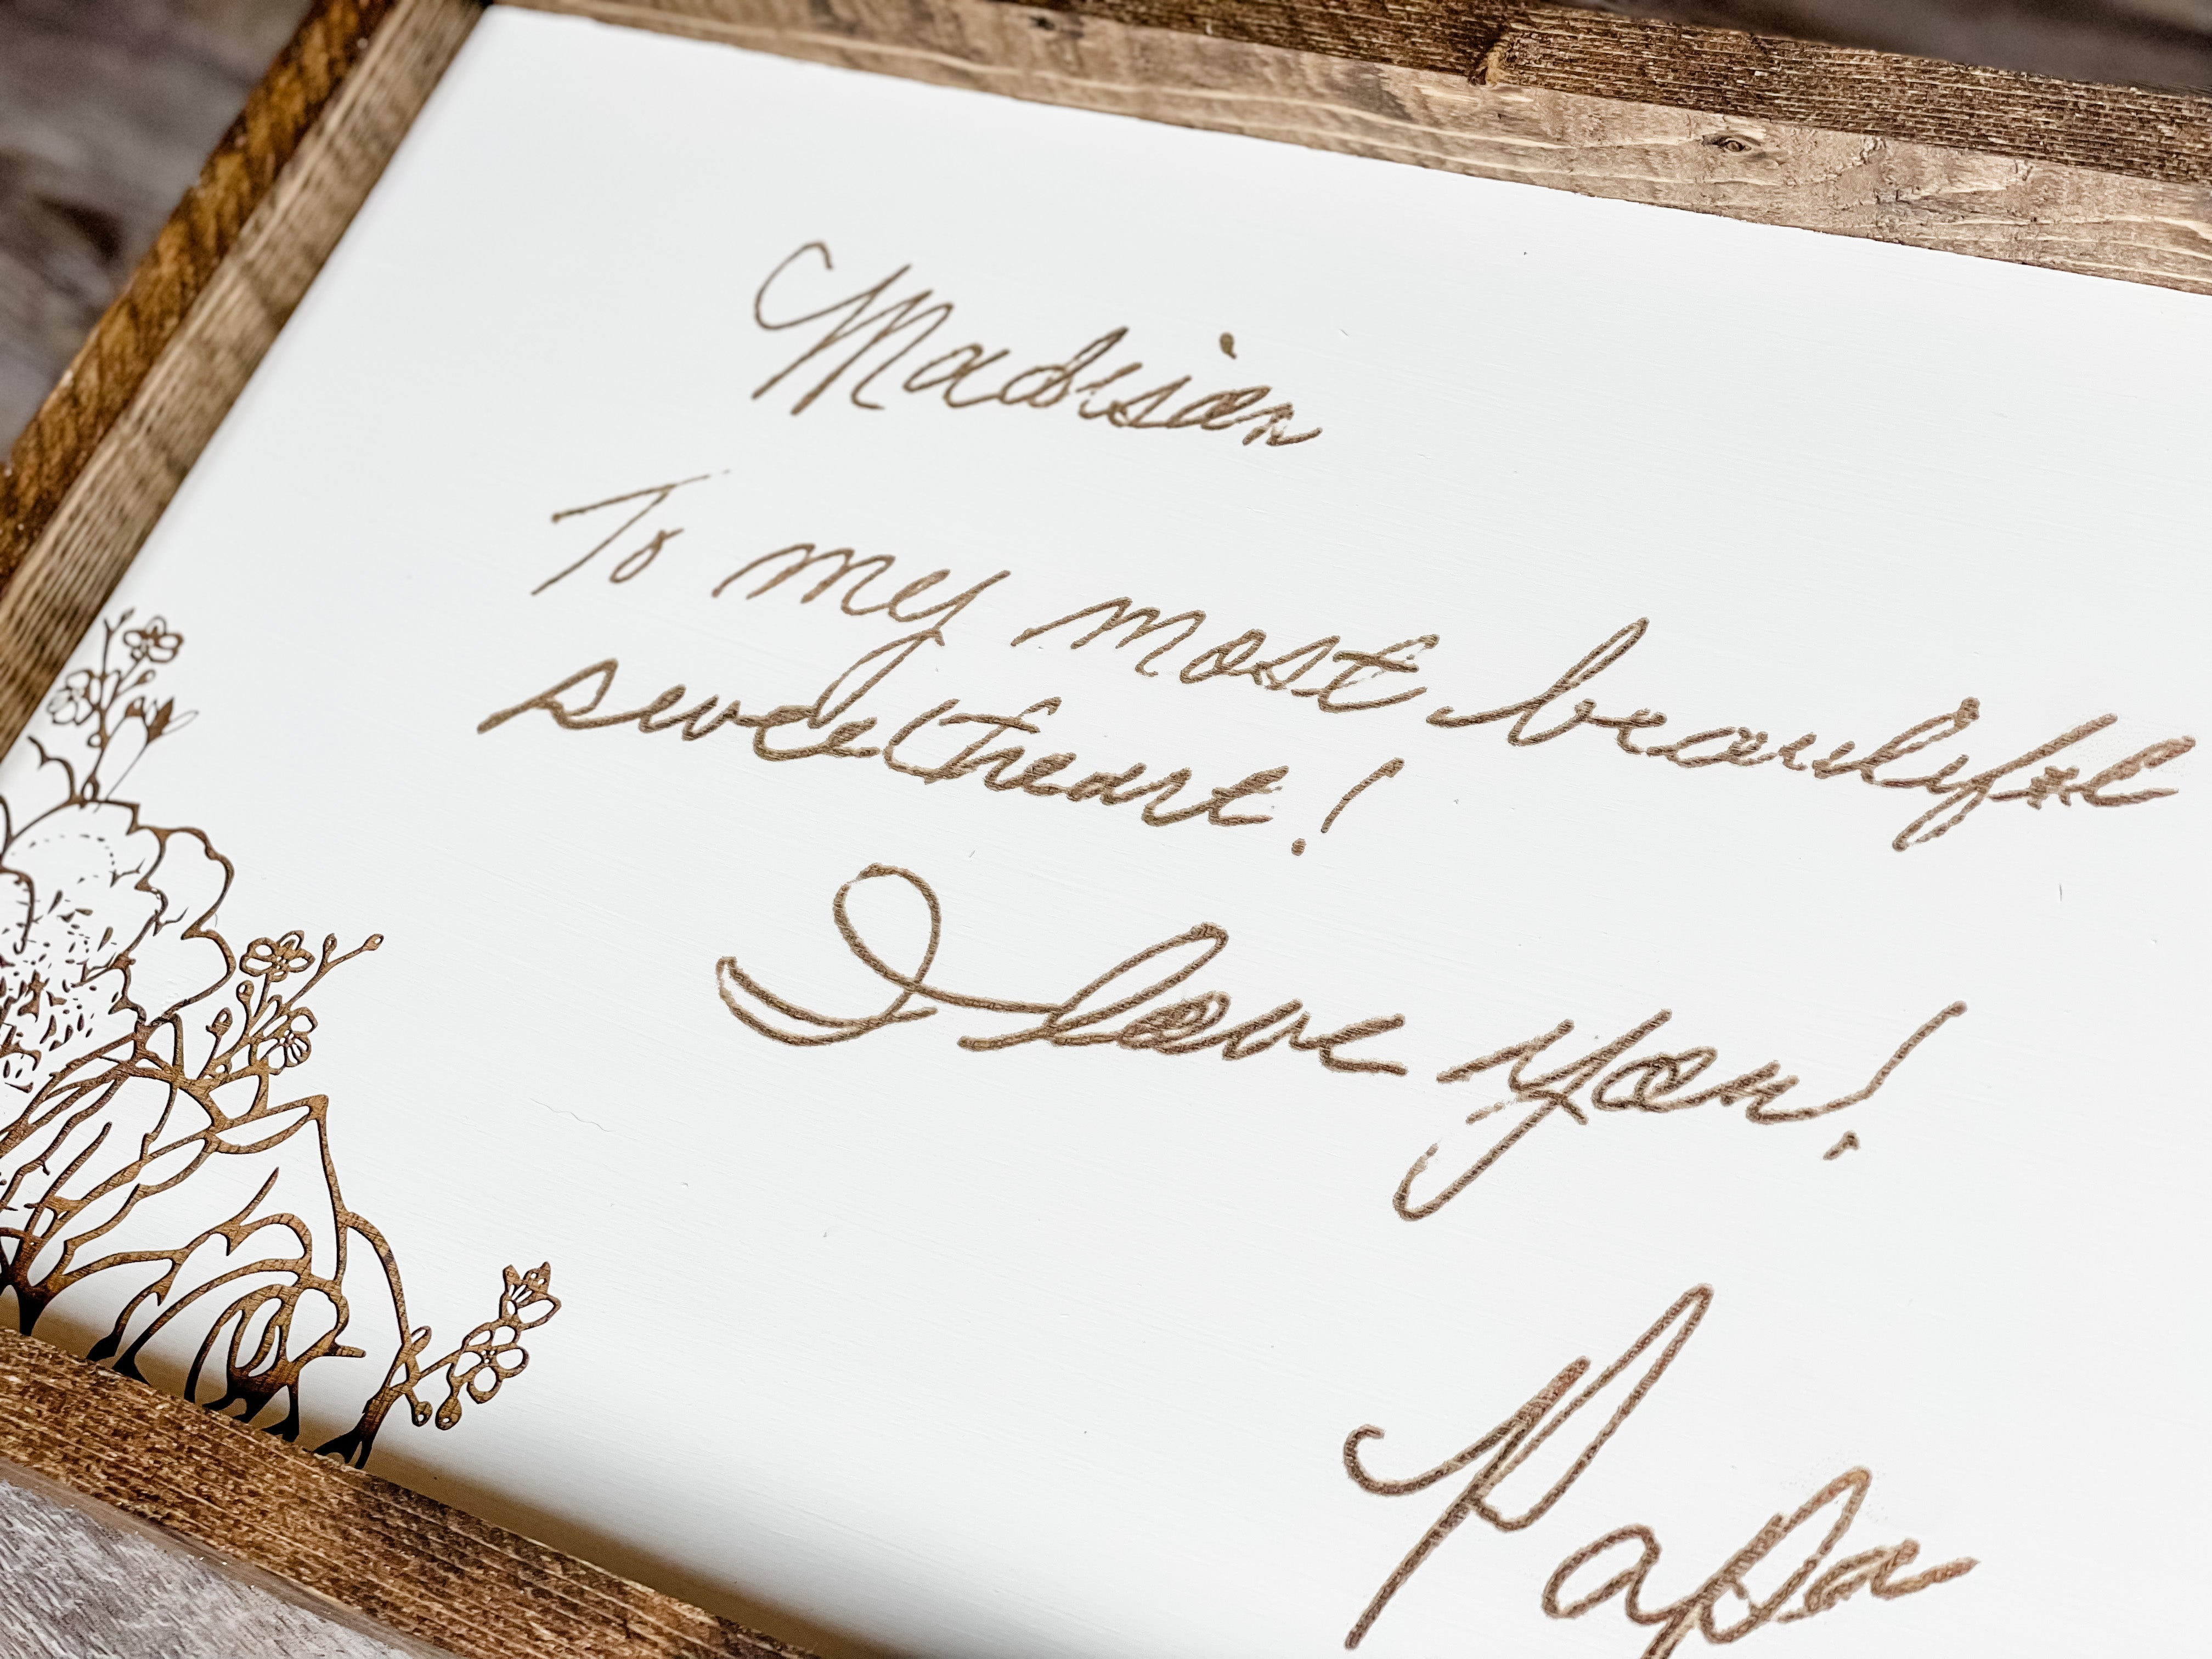 Madison
To my most beautiful
sweetheart!
I love you!
Papa